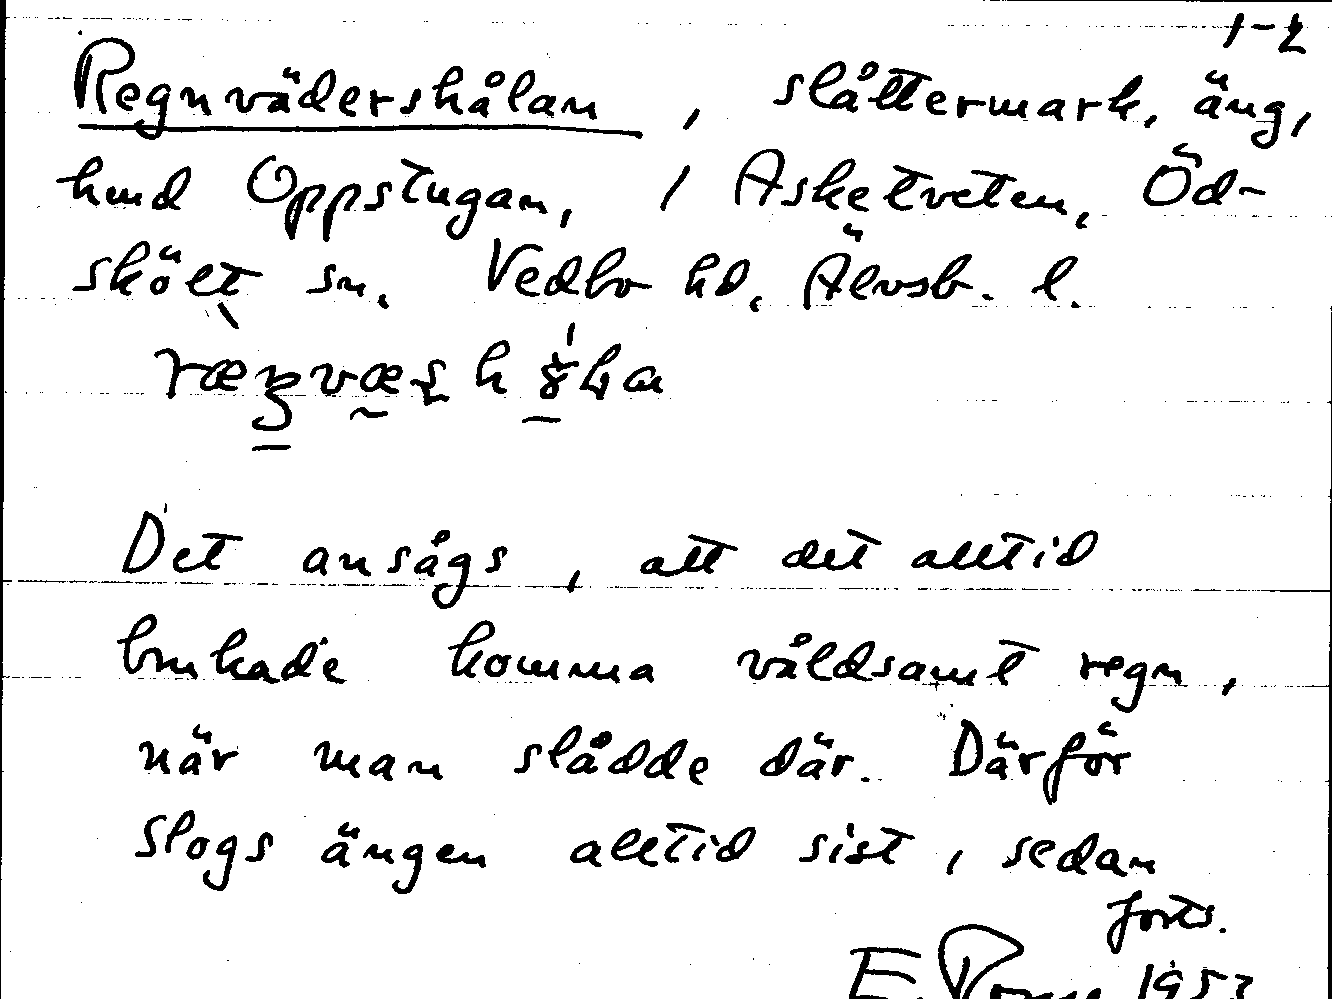 1-2
Regnvädershålan, slåttermark, äng,
hmd Oppstugan, 1 Asketveten, Öd-
skölt sn. Vedbo hd. Älvsb. l.
Det ansågs, att det alltid
brukade komma våldsamt regn,
när man slådde där. Därför
slogs ängen alltid sist, sedan
forts.
E.